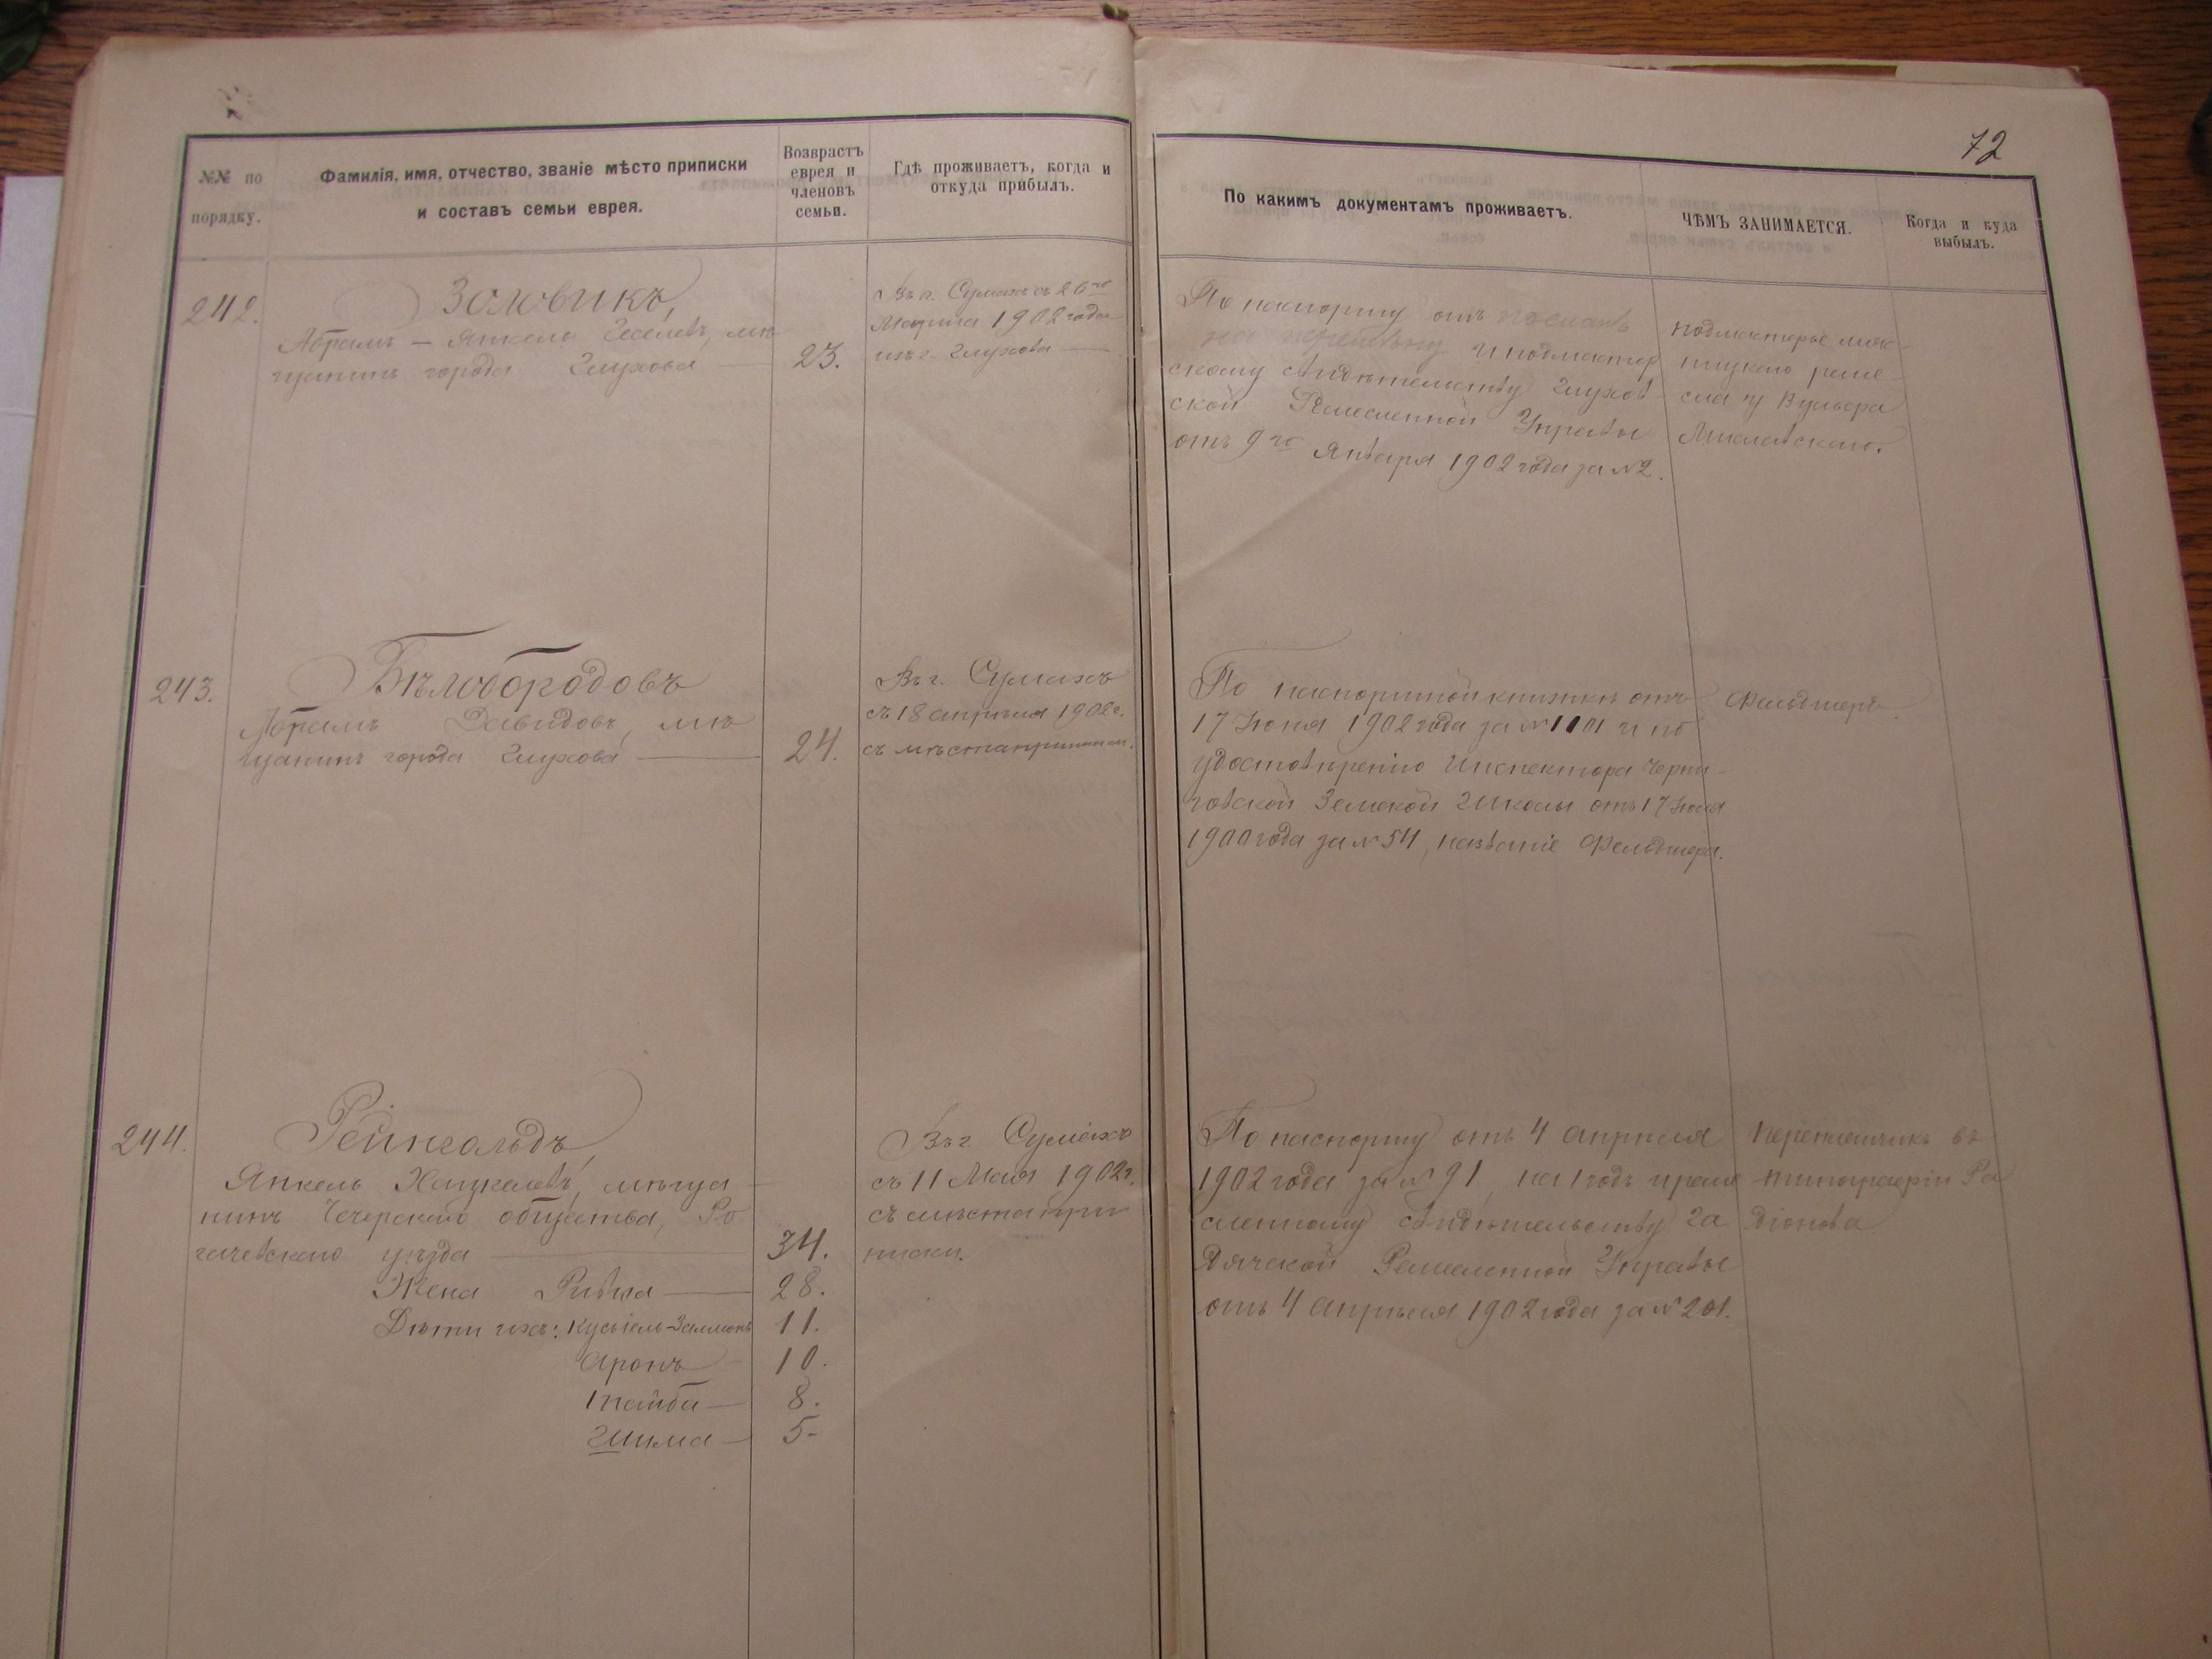 72
№№ по порядку.
Фамилія, имя, отчество, званіе мѣсто приписки
и составъ семьи еврея.
Возврастъ
еврея и
членовъ
семьи.
Гдѣ проживаетъ, когда и
откуда прибылъ.
По какимъ документамъ проживаетъ.
ЧѢМЪ ЗАНИМАЕТСЯ.
Когда и куда
выбылъ.
242.
Золовикъ,
Абрамъ — Янкель Геселевъ, мѣ
щанинъ города Глухова
23.
Въ г. Сумахъ съ 20го
Марта 1902 года
изъ г. Глухова
По паспорту отъ
и подмастер
скому свидѣтельству Глухов
ской Ремесленной Управы
отъ 9го Января 1902 года за № 2.
подмастерье
реме-
сла у
243.
Бѣлобородовъ
Абрамъ Давидовъ, мѣ
щанинъ города Глухова
24.
Въ г. Сумахъ
съ 18 апрѣля 1902 г.
съ мѣста приписки.
По паспортной книжкѣ отъ
17 Іюня 1902 года за № 1101 и по
удостовѣренію Инспектора Черни-
говской Земской Школы отъ 17 Іюня
1900 года за № 54, названіе Фельдшера.
Фельдшеръ.
244.
Рейнгольдъ,
Янкель Хацкелевъ, мѣща-
нинъ Чечерскаго общества, Ро
гачевскаго уѣзда
34.
Жена Ривка
28.
Дѣти ихъ: Кусіель-Залманъ
11.
Аронъ
10.
Тайба
8.
Шима
5-
Въ г. Сумахъ
съ 11 Мая 1902 г.
съ мѣста при
писки.
По паспорту отъ 4 апрѣля
1902 года за № 91, на 1 годъ и реме
сленному свидѣтельству Га
дячской Ремесленной Управы
отъ 4 Апрѣля 1902 года за № 201.
Переплетчикъ въ
типографіи Ра
діонова